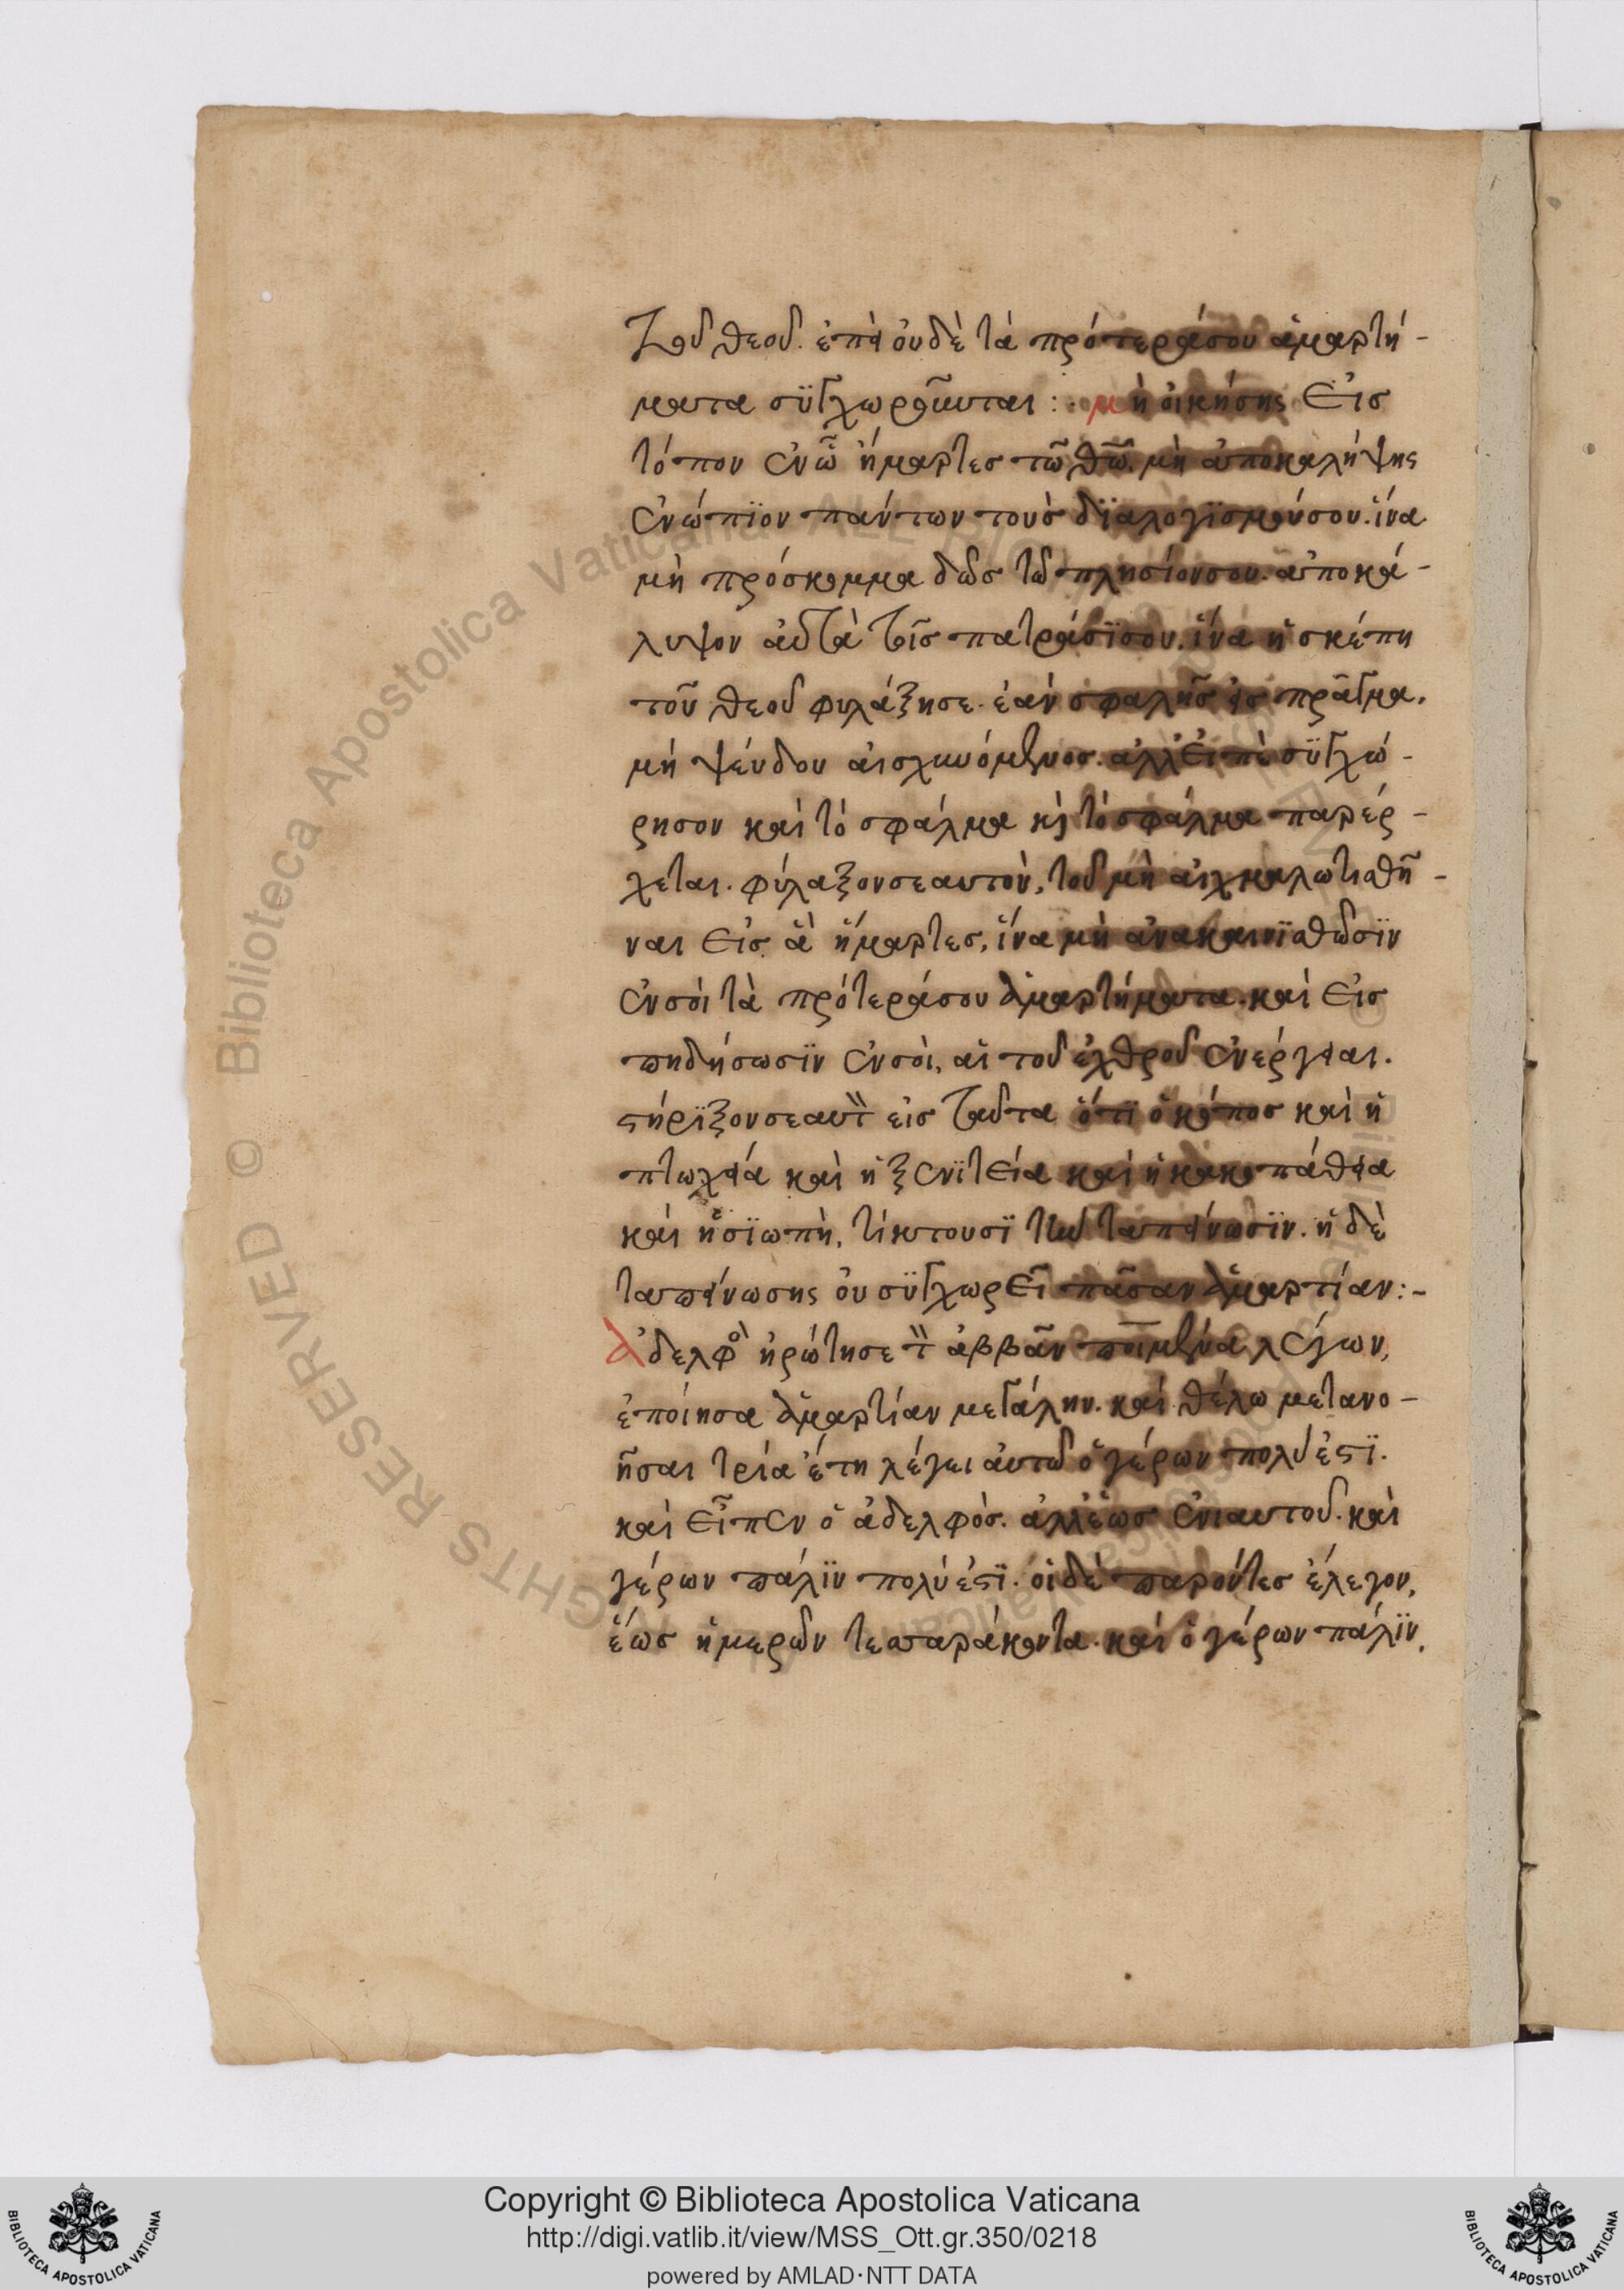 τοῦ θεοῦ. ἐπεὶ οὐδὲ τὰ πρότεράσου ἁμαρτή-
ματα συγχωροῦνται :. μὴ οἰκήσης εἰς
τόπον ἐνῶ ἥμαρτες τῶ θῶ. μὴ ἀποκαλήψης
ἐνώπϊον πάντων τοὺς δϊαλογϊσμούσου. ἵνα
μὴ πρόσκομμα δῶς τῶ πλησίονσου. ἀποκά-
λυψον αὐτὰ τοῖς πατράσϊσου. ἵνα ἡ σκέπη
τοῦ θεοῦ φυλάξησε. ἐάν σφαλῆς εἰς πρᾶγμα.
μή ψέυδου αἰσχυνόμενος. ἀλλεἰπὲ συγχώ-
ρησον καὶ τὸ σφάλμα κὶ τὸ σφάλμα παρέρ-
χεται. φύλαξονσεαυτὸν, τοῦ μὴ αἰχμαλωτισθῆ-
ναι εἰς ἃ ἥμαρτες, ἵνα μὴ ἀνακαινϊσθῶσϊν
ἐνσοὶ τὰ πρότεράσου ἁμαρτήματα. καὶ εἰσ
πηδήσωσϊν ἐνσοὶ, αἱ τοῦ ἐχθροῦ ἐνέργειαι.
στήρϊξονσεαυτ̀ εἰς ταῦτα ὅτϊ ὁ κόπος καὶ ἡ
πτωχεία καὶ ἡ ξενϊτεία καὶ ἡ κακοπάθεια
καὶ ἡ σϊωπὴ, τίκτουσϊ τὴν ταπείνωσϊν. ἡ δὲ
ταπείνωσης οὐ συγχωρεῖ πᾶσαν ἁμαρτίαν:-
ἀδελφὸ ἠρώτησε τ̀ ἀββᾶν ποιμένα λέγων,
ἐποίησα ἁμαρτίαν μεγάλην. καὶ θέλω μετανο-
ῆσαι τρία ἔτη λέγει αὐτῶ ὁ γέρων πολύ ἐστϊ.
καὶ εἶπεν ὁ ἀδελφὸς. ἀλλἕως ἐνιαυτοῦ. καὶ
γέρων πάλϊν πολὺ ἐστϊ. οἱ δὲ παρόντες ἔλεγον,
ἕως ἡμερῶν τεσσαράκοντα. καὶ ὁ γέρων πάλϊν,
Copyright © Biblioteca Apostolica Vaticana
http://digi.vatlib.it/view/MSS_Ott.gr.350/0218
powered by AMLAD·NTT DATA